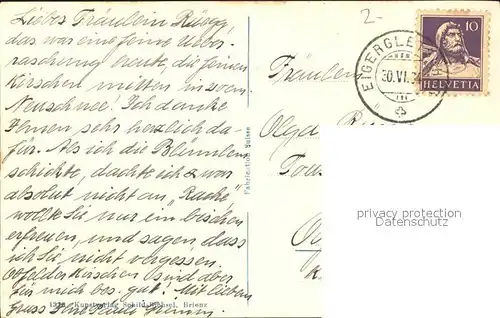 Liebes Fräulein Rüegg
das war eine feine Über-
raschung heute, die feinen
Kirschen mitten in dem
Neuschnee. Ich danke
Ihnen sehr herzlich da-
für. Als ich die Blümlein
schickte, dachte ich
absolut nicht an "Rache",
wollte Sie nur ein bischen
erfreuen, und sagen dass
ich Sie nicht vergessen.
Kirschen sind aber
für mich bes. gut! Mit lieben
Gruss Ihre
Kunstverlag Brienz
Fabrication Suisse
2-
Fräulein
Olga
EIGERGLE
30.VI.
10
HELVETIA
privacy protection
watermark